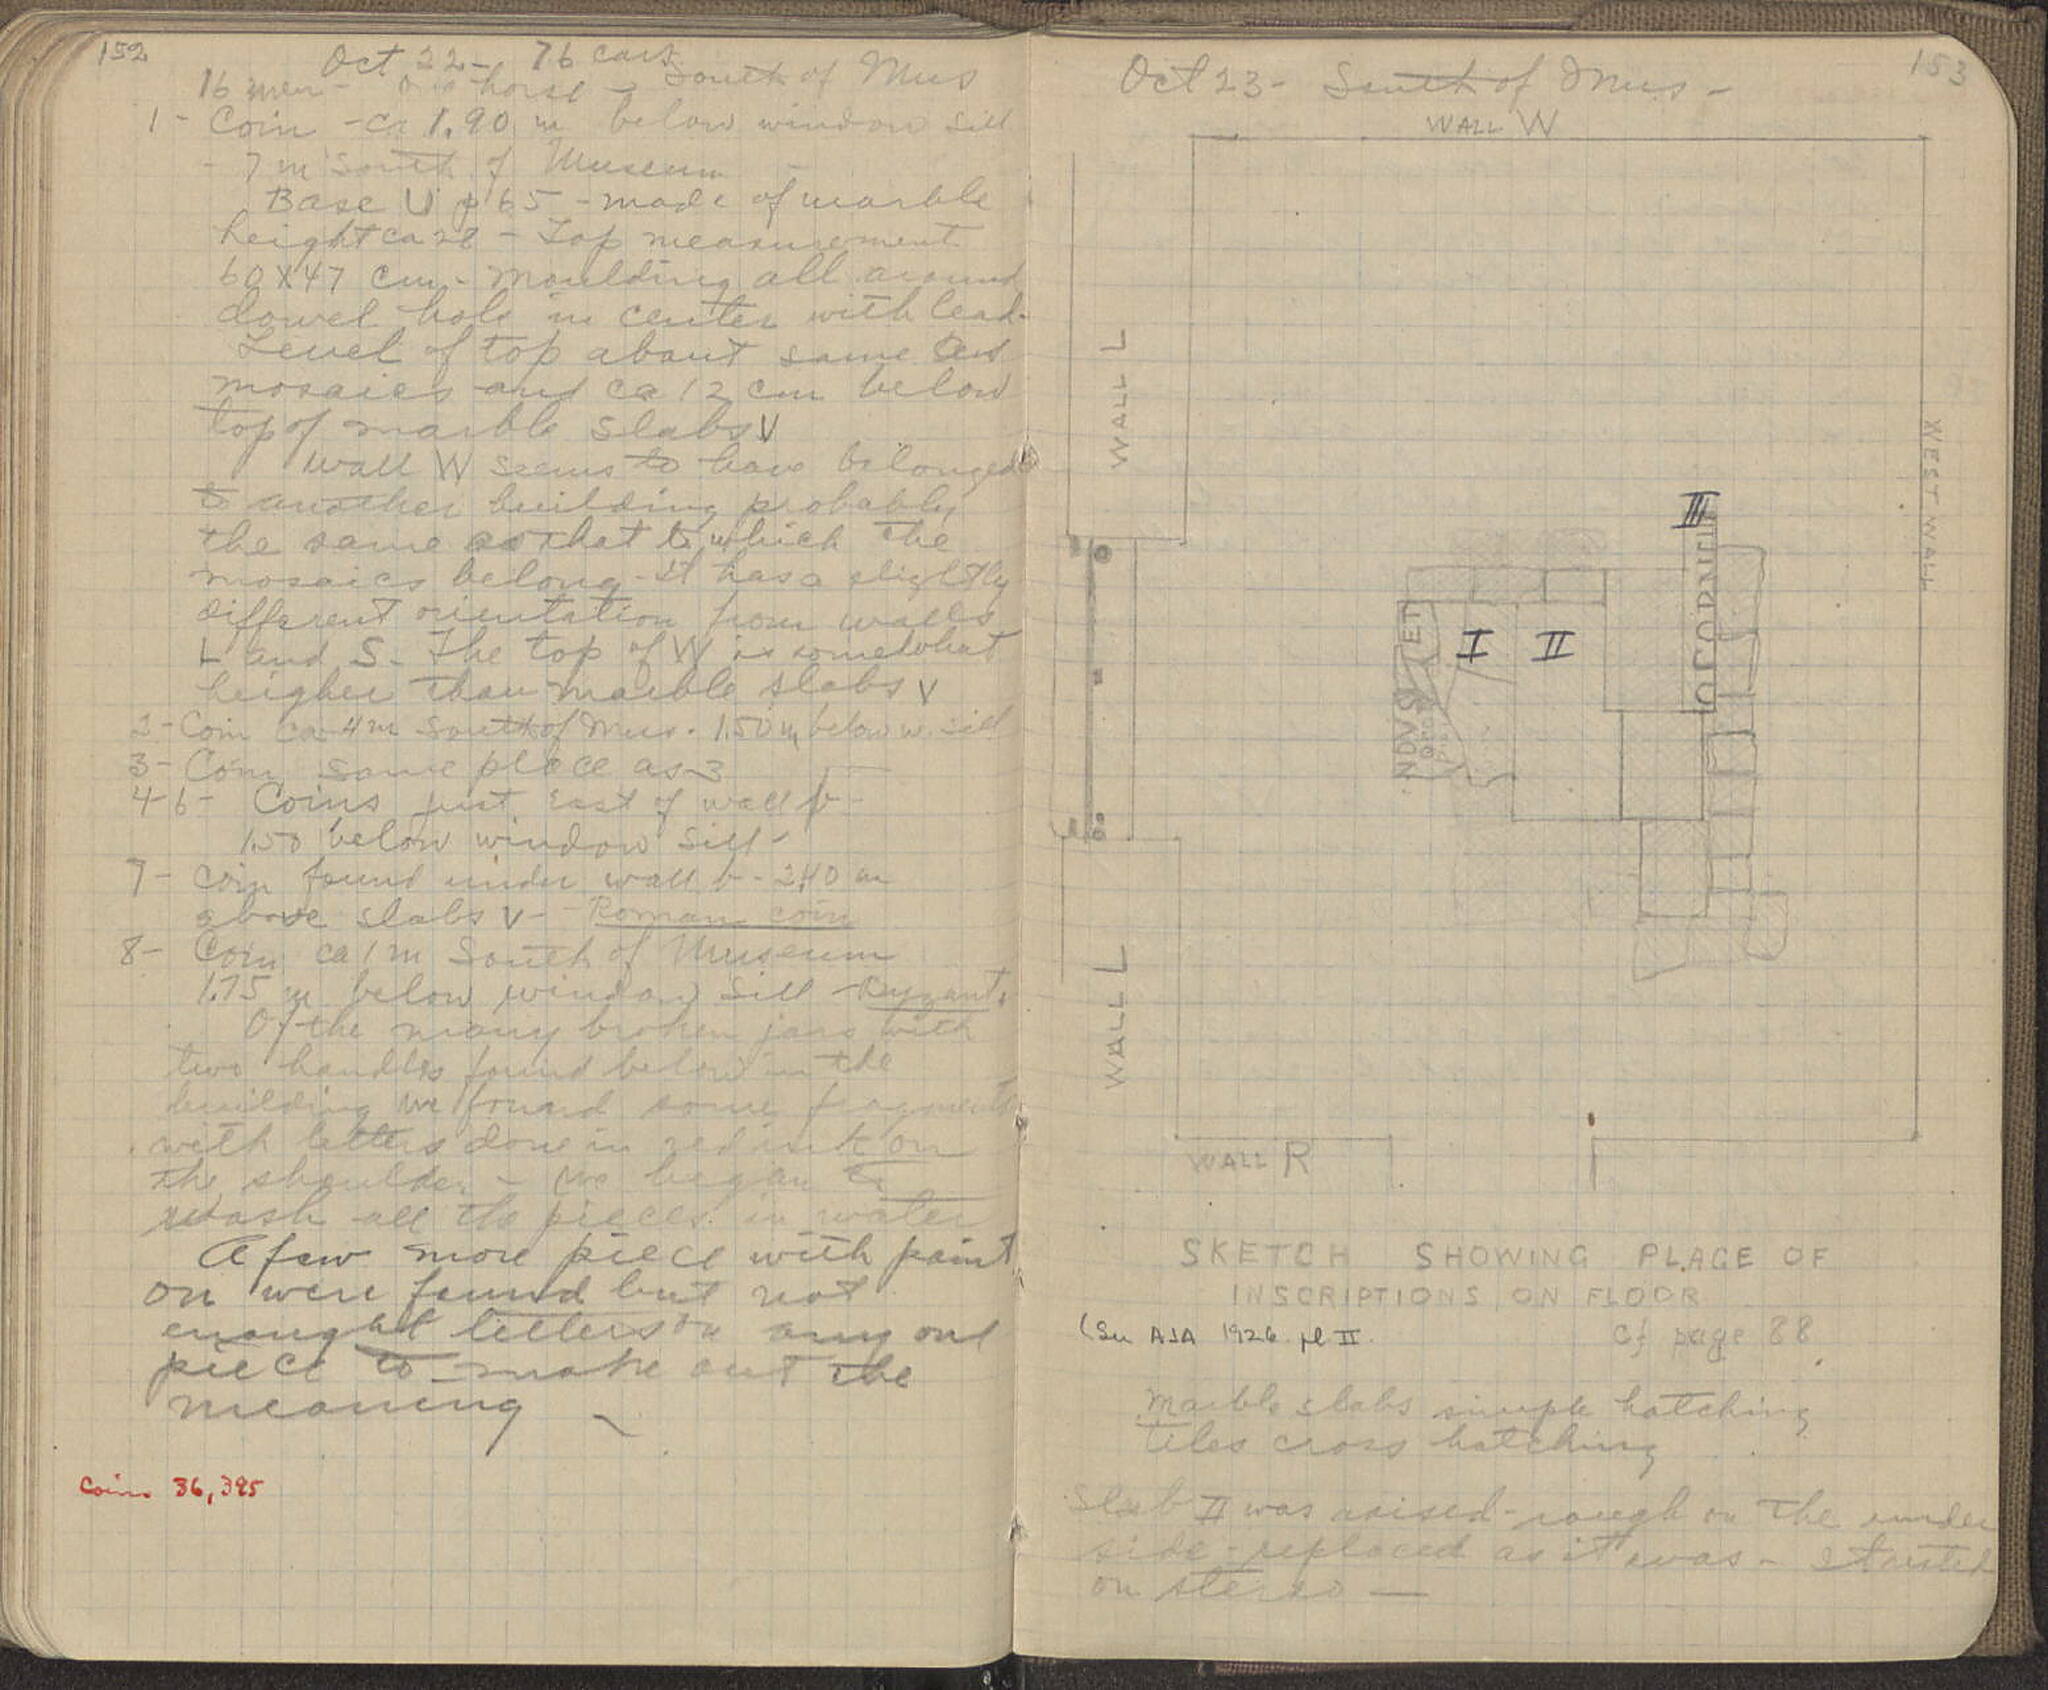 152
Oct 22 - 76 cars
16 men - one horse - South of Mus
1 - Coin - ca 1.90 m below window sill
- 7 m South of Museum -
Base U p 65 - made of marble
height ca - Top measurement
60 x 47 cm - moulding all around
dowel hole in center with lead -
Level of top about same as
mosaics and ca 12 cm below
top of marble slabs V
Wall W seems to have belonged
to another building probably
the same as that to which the
mosaics belong - it has a slightly
different orientation from walls
L and S - The top of W is somewhat
heigher than marble slabs V
2 - Coin ca 4 m South of Mus. 1.50 m below w. sill
3 - Coin same place as 3
4-6 - Coins just east of wall b -
1.50 below window sill -
7 - Coin found under wall b - 2.40 m
above slabs V - Roman coin
8 - Coin ca 1 m South of Museum
1.75 m below window sill - Byzant.
Of the many broken jars with
two handles found below in the
building we found some fragments
with letters done in red ink on
the shoulder - we began to
wash all the pieces in water
A few more piece with paint
on were found but not
enought letters on any one
piece to make out the
meaning
Coins 36, 395
153
Oct 23 - South of Mus -
WALL W
WALL L
WEST WALL
III
OCFORNEL
ET
I
II
NDVS
WALL L
WALL R
SKETCH SHOWING PLACE OF
INSCRIPTIONS ON FLOOR
(See AJA 1926 pl II.
Cf page 88
Marble slabs simple hatching
tiles cross hatching
Slab II was raised - rough on the under
side - replaced as it was - I
on stereo -